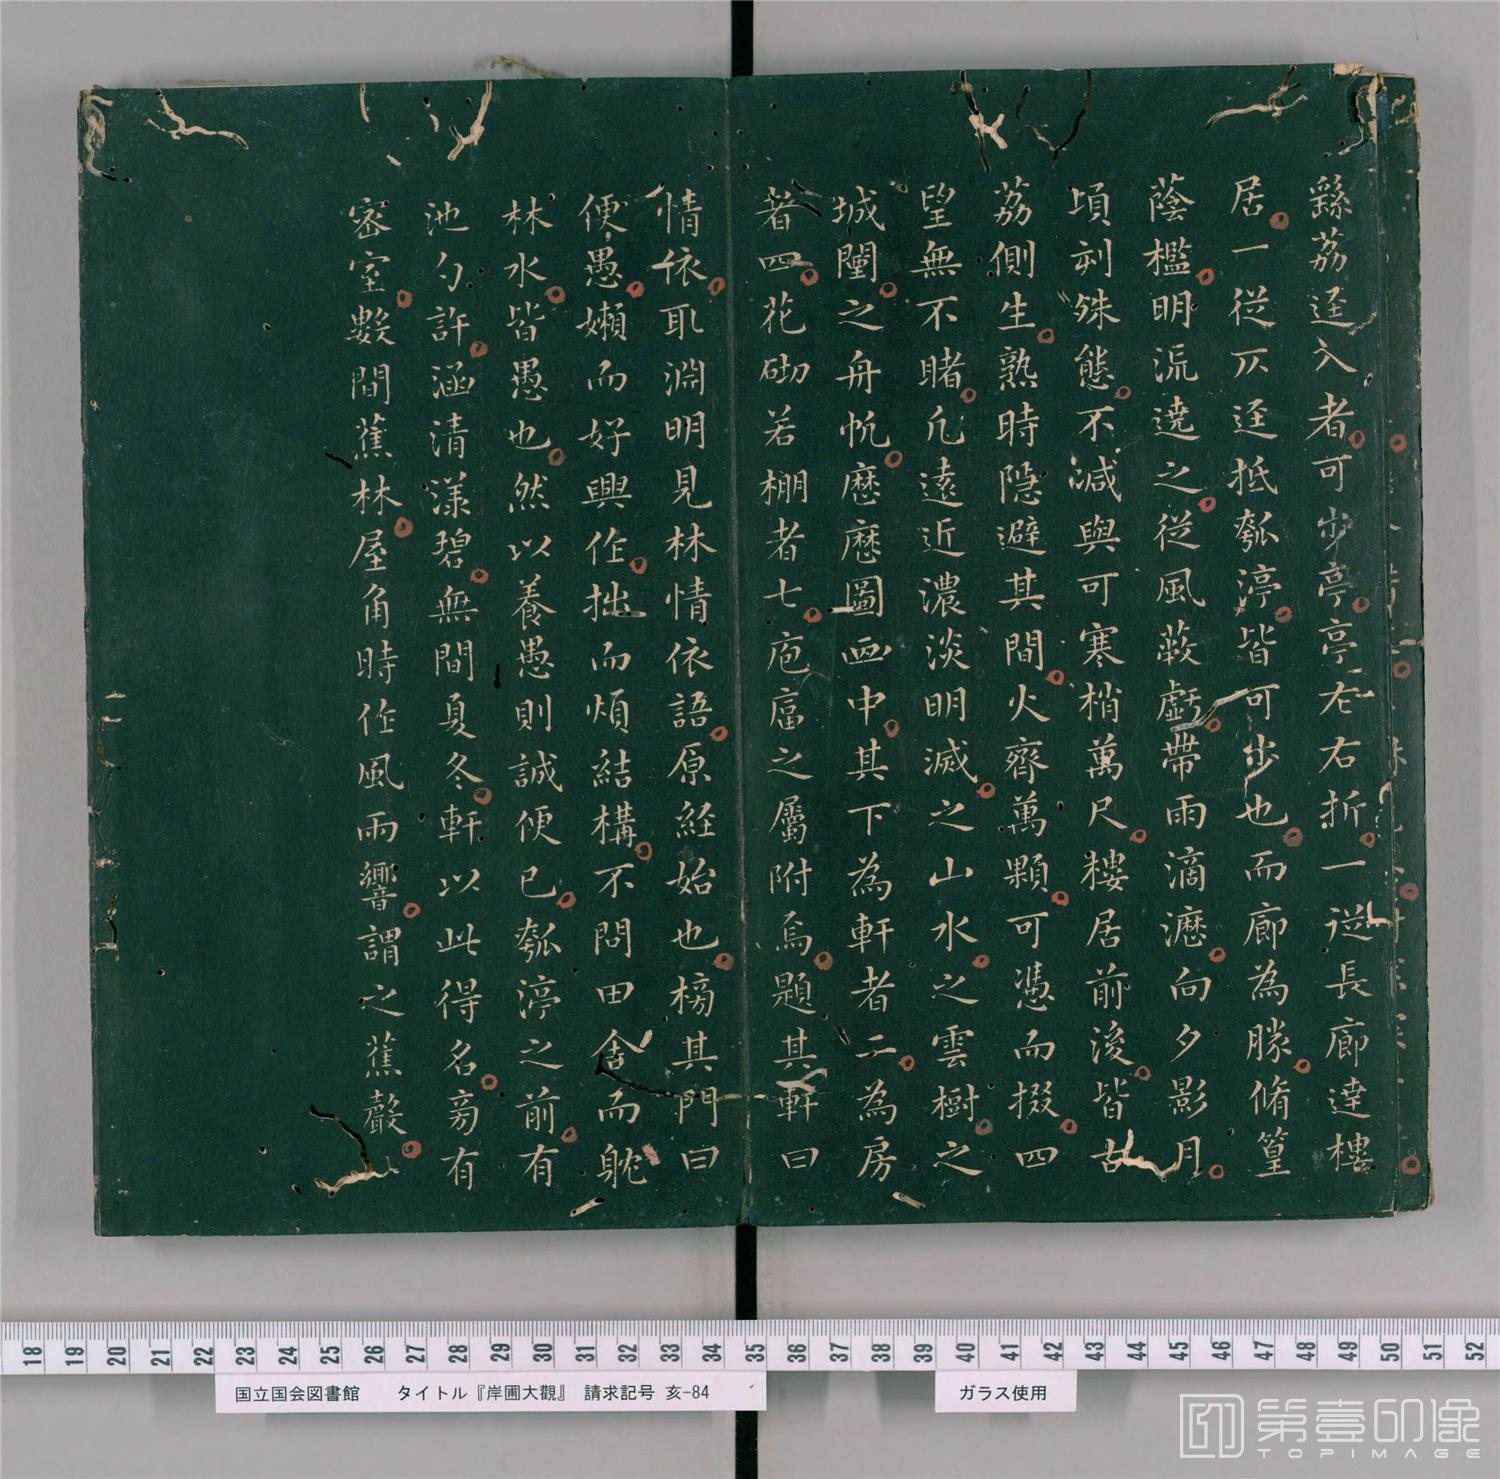 繇荔逕入者可步亭亭左右折一從長廊達樓
居一從仄逕抵瓠渟皆可步也而廊為勝脩篁
蔭檻明流遶之從風蔽虧帶雨滴瀝向夕影月
頃刻殊態不減與可寒梢萬尺樓居前後皆古
荔側生熟時隱避其間火齊萬顆可憑而掇四
望無不睹凡遠近濃淡明滅之山水之雲樹之
城闉之舟帆歷歷圖画中其下為軒者二為房
者四花砌若棚者七庖湢之屬附焉題其軒曰
情依取淵明見林情依語原經始也榜其門曰
便愚嬾而好興作拙而煩結構不問田舍而躭
林水皆愚也然以養愚則誠便已瓠渟之前有
池勺許涵清漾碧無間夏冬軒以此得名旁有
密室數間蕉林屋角時作風雨響謂之蕉聲
18 19 20 21 22 23 24 25 26 27 28 29 30 31 32 33 34 35 36 37 38 39 40 41 42 43 44 45 46 47 48 49 50 51 52
国立国会図書館　タイトル『岸圃大觀』　請求記号 亥-84
ガラス使用
第壹印像
TOPIMAGE